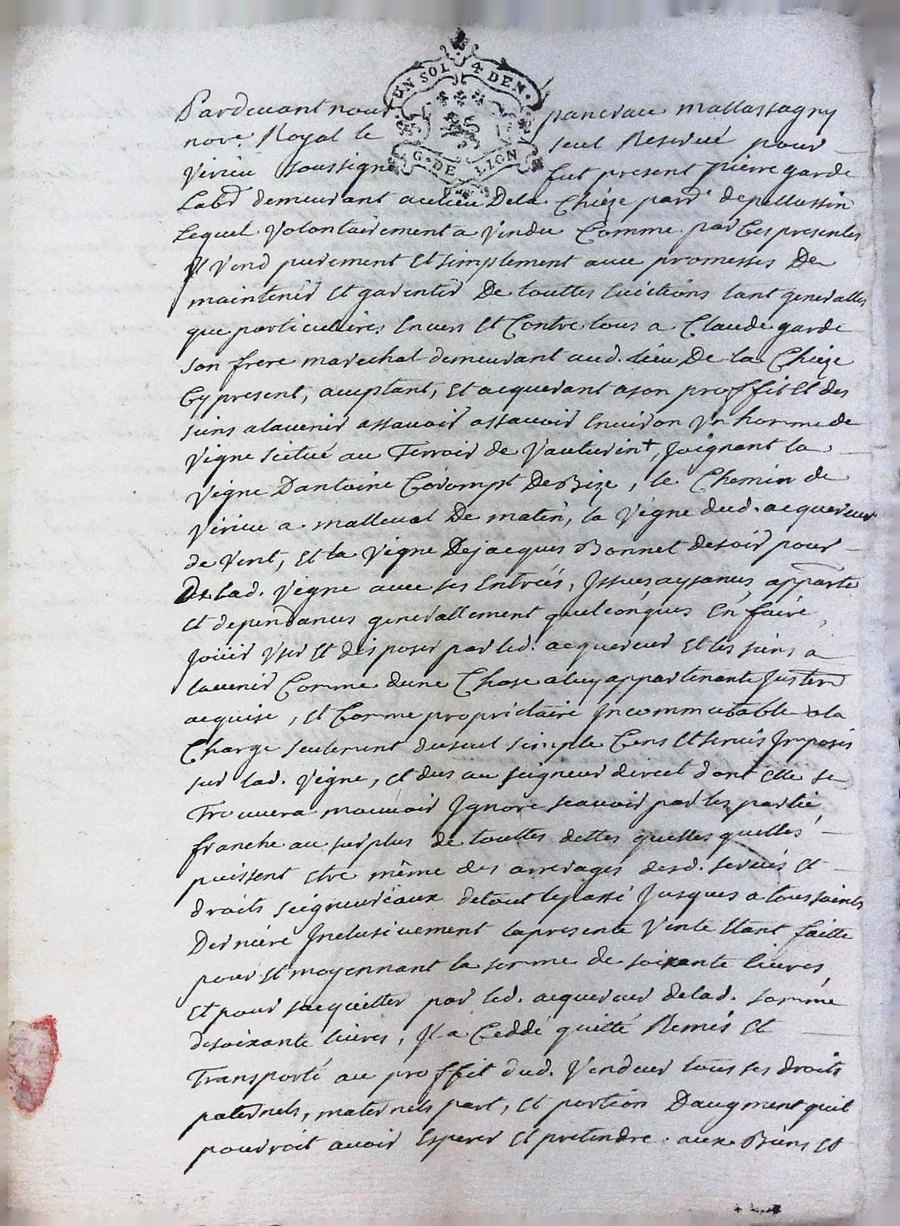 UN SOL 4 DEN.
G. DE LION
Pardevant nous pancrace mallassagny
nore. Royal le seul Reservé pour
Virieu soussigné fut present pierre garde
Labr demeurant au lieu Dela Chièze parr. de pellussin
Lequel Volontairement a Vendu Comme par Ces presentes
Il Vend purement et simplement avec promesses De
maintenir et garentir De touttes Evictions tant generalles
que particulieres Envers et Contre tous a Claude garde
son frere marechal demeurant aud. Lieu De la Chieze
Cy present, acceptant, et acquerant a son proffit et des
siens alavenir assavoir assavoir Environ Un homme de
Vigne scitué au Terroir de Vauturin+, Joignant la
Vigne Dantoine Corompt De Bize, le Chemin de
Virieu a malleval De matin, la Vigne dud. acquereur
de Vent, et la Vigne De jacques Bonnet de soir pour
De lad. Vigne avec ses Entrées, Issues aysances, apparte
et dependances generallement quelconques En faire,
Joüir User et disposer par led. acquereur et les siens a
lavenir Comme dune Chose a luy appartenante Justemt
acquise, et Comme proprietaire Incommutable a la
Charge seulement du seul simple Cens et servis Imposés
sur lad. Vigne, et dus au seigneur direct dont Elle se
Trouvera mouvoir Ignoré scavoir par les partie
franche au surplus de touttes dettes quelles quelles
puissent etre même des arrerages desd. servis et
droits seigneuréaux de tout le passé Jusques a toussaints
Derniere Inclusivement la presente Vente Etant faitte
pour et moyennant la somme de soixante livres,
et pour sacquitter par led. acquereur de lad. somme
de soixante livres, Il a Ceddé quitté Remis et
Transporté au proffit dud. Vendeur tous ses droits
paternels, maternels part, et portion Daugment quil
pourroit avoir Esperer et pretendre aux Biens et